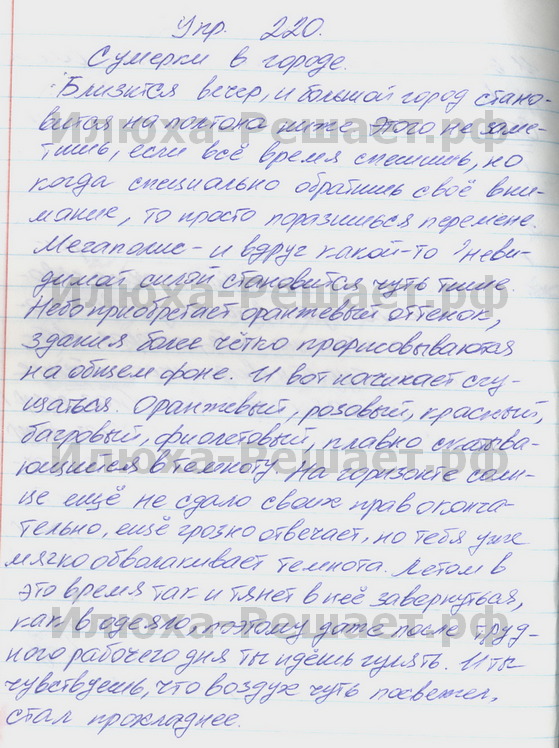 Упр. 220.
Сумерки в городе.
Близится вечер, и большой город стано-
вится на полтона ниже. Этого не заме-
тишь, если всё время спешишь, но
когда специально обратишь своё вни-
мание, то просто поразишься перемене.
Мегаполис - и вдруг какой-то неви-
димой силой становится чуть тише.
Небо приобретает оранжевый оттенок,
здания более чётко прорисовываются
на общем фоне. И вот начинает сгу-
щаться. Оранжевый, розовый, красный,
багровый, фиолетовый, плавно скатыва-
ющийся в темноту. На горизонте солн-
це ещё не сдало своих прав оконча-
тельно, ещё грозно отвечает, но тебя уже
мягко обволакивает темнота. Летом в
это время так и тянет в неё завернуться,
как в одеяло, поэтому даже после труд-
ного рабочего дня ты идёшь гулять. И ты
чувствуешь, что воздух чуть посвежел,
стал прохладнее.
Илюха-Решает.рф
Илюха-Решает.рф
Илюха-Решает.рф
Илюха-Решает.рф
Илюха-Решает.рф